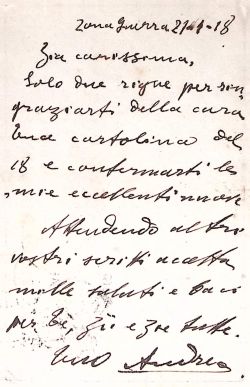 Zona Guerra 21-1-18
Zia carissima,
Solo due righe per rin
graziarti della cara
tua cartolina del
18 e confermarti le
mie eccellenti nuove
Attendendo altri
vostri scritti accetta
mille saluti e baci
per te, zii e zie tutte.
tuo Andrea